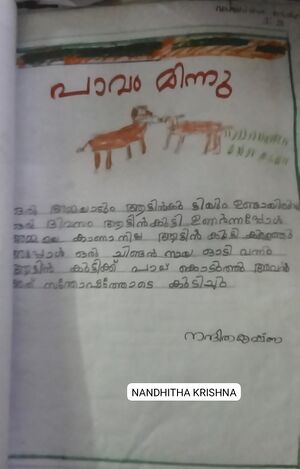 പാവം മിന്നു
ഒരു അമ്മയാടും ആട്ടിൻകുട്ടിയും ഉണ്ടായിരു
ഒരു ദിവസം ആട്ടിൻകുട്ടി ഉണർന്നപ്പോൾ
അമ്മയെ കാണാനില്ല ആട്ടിൻ കുട്ടി കരഞ്ഞു
അപ്പോൾ ഒരു ചിങ്ങൻ നായ ഓടി വന്നു
ആട്ടിൻ കുട്ടിക്ക് പാല് കൊടുത്തു അവൻ
അത് സന്തോഷത്തോടെ കുടിച്ചു
നന്ദിതകൃഷ്ണ
NANDHITHA KRISHNA